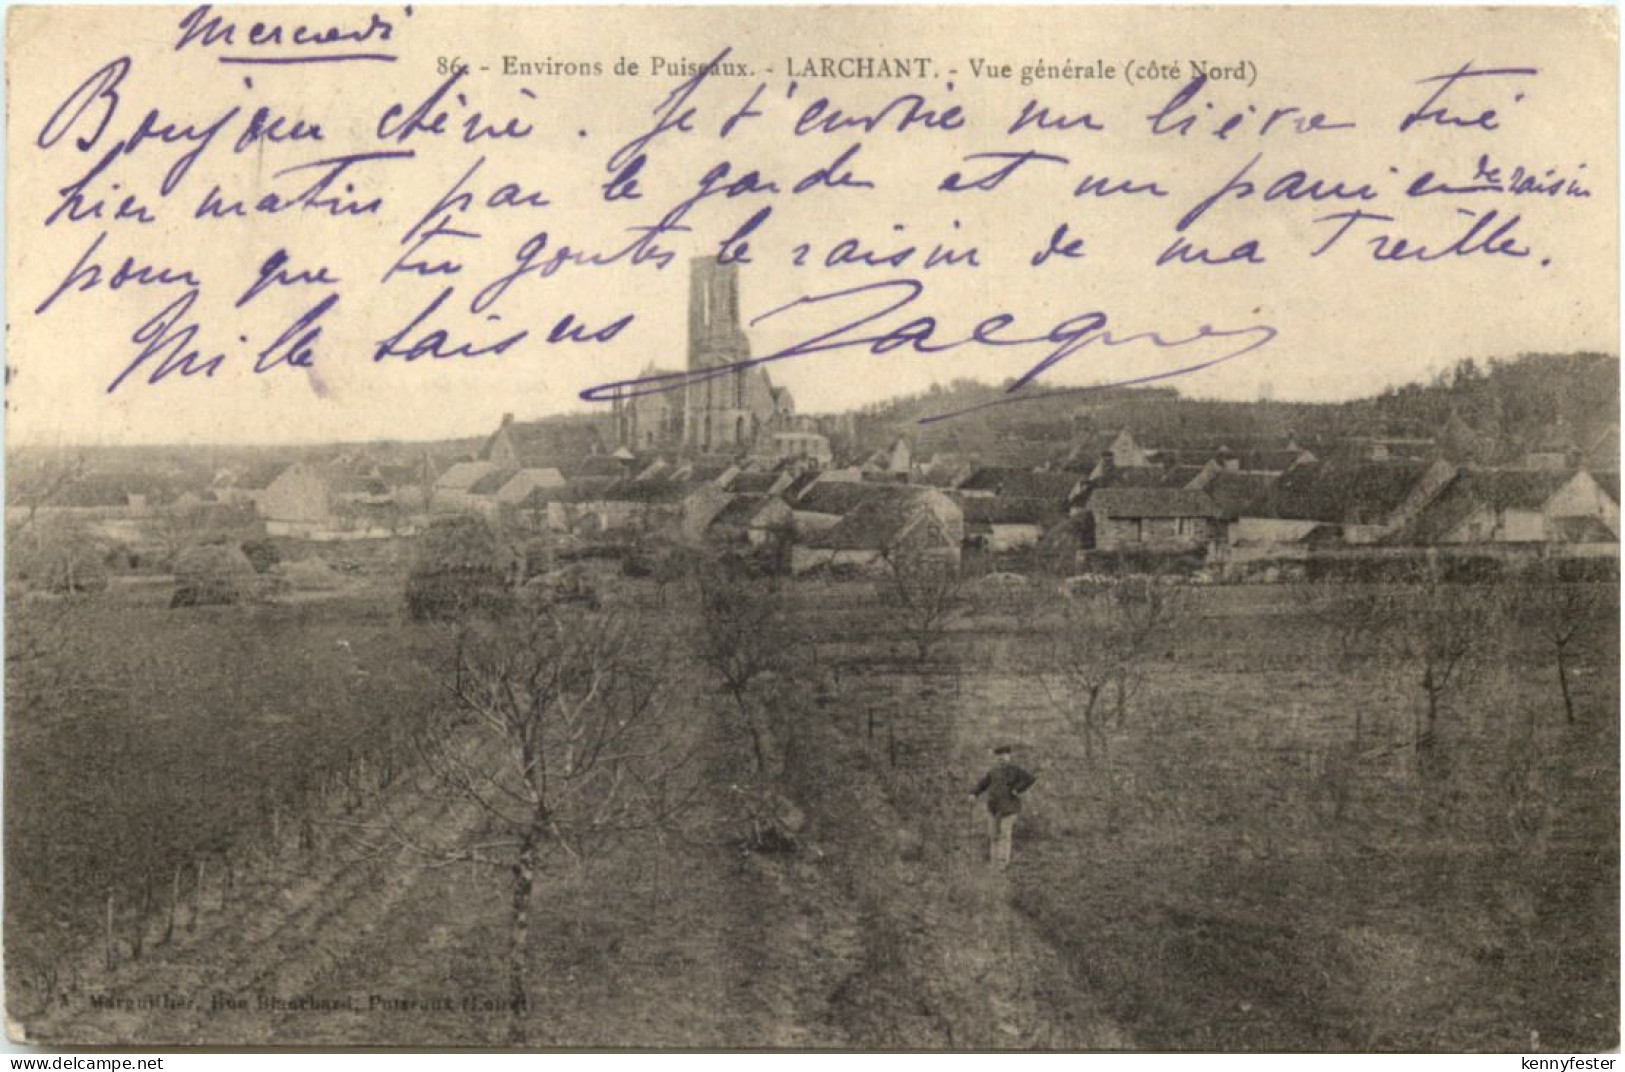 Mercredi
86. - Environs de Puiseaux. - LARCHANT. - Vue générale (côté Nord)
Bonjour chérie. Je t'envoie un lièvre tué
hier matin par le garde et un panier de raisin
pour que tu goutes le raisin de ma Treille.
Mille baisers Jacques
A. Marguillier, Rue Blanchard, Puiseaux (Loiret)
delcampe.net
kennyfester